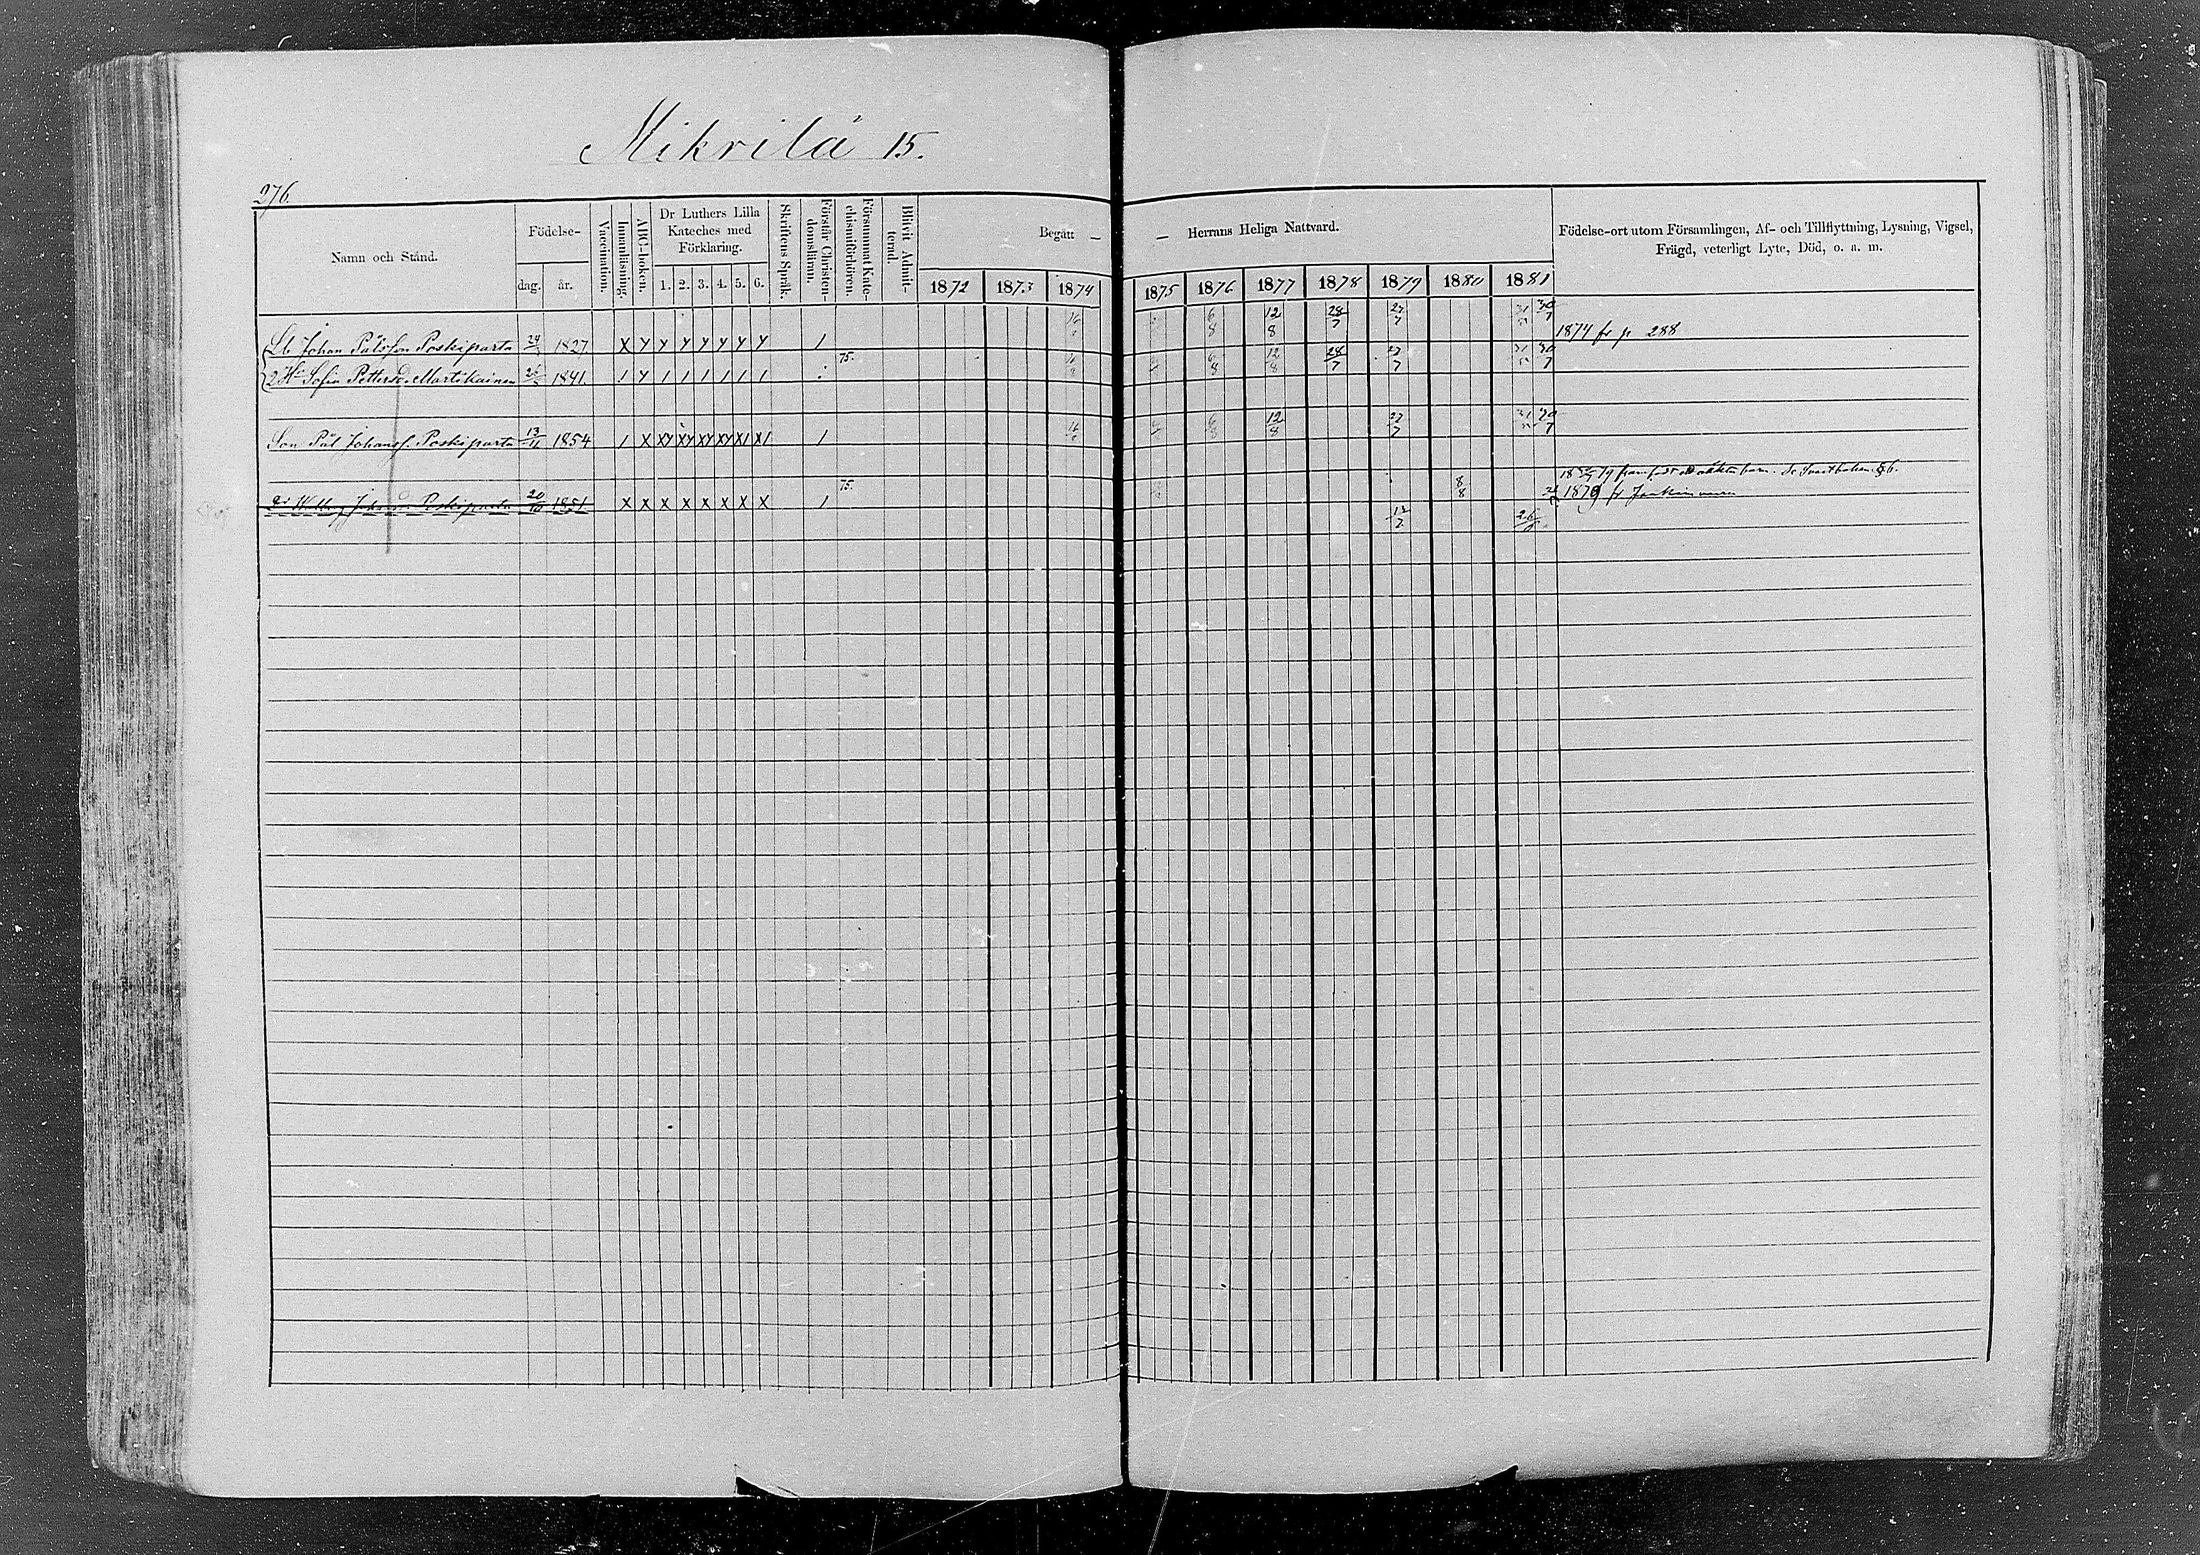 Mikrilä 15.
276.
Namn och Stånd.
Födelse-
dag. år.
Vaccination.
Innanläsning.
ABC-boken.
Dr Luthers Lilla
Kateches med
Förklaring.
1. 2. 3. 4. 5. 6.
Skriftens Språk.
Förstår Christen-
domslärnu.
Försummat Kate-
chismiförhören.
Blifvit Admit-
terad.
Begått — — Herrans Heliga Nattvard.
1872 1873 1874 1875 1876 1877 1878 1879 1880 1881
Födelse-ort utom Församlingen, Af- och Tillflyttning, Lysning, Vigsel,
Frägd, veterligt Lyte, Död, o. a. m.
Lb Johan Pålsson Poskiparta 1827. X Y Y Y Y Y Y Y / 6/8 12/8 28/7 27/7 30/7 1874 fr p 288
2 H. Sofia Pettersd. Martikainen 1841. / Y / / / / / / 75. 6/8 12/8 28/7 27/7 30/7
Son Pål Johanss. Poskiparta 13/11 1854 / X XY XY XY XY X/ X/ / 6/8 12/8 27/7 30/7
Poskiparta 20/10 1851. X X X X X X X X / 75. 8/8 1879 fr
12/7 26/6